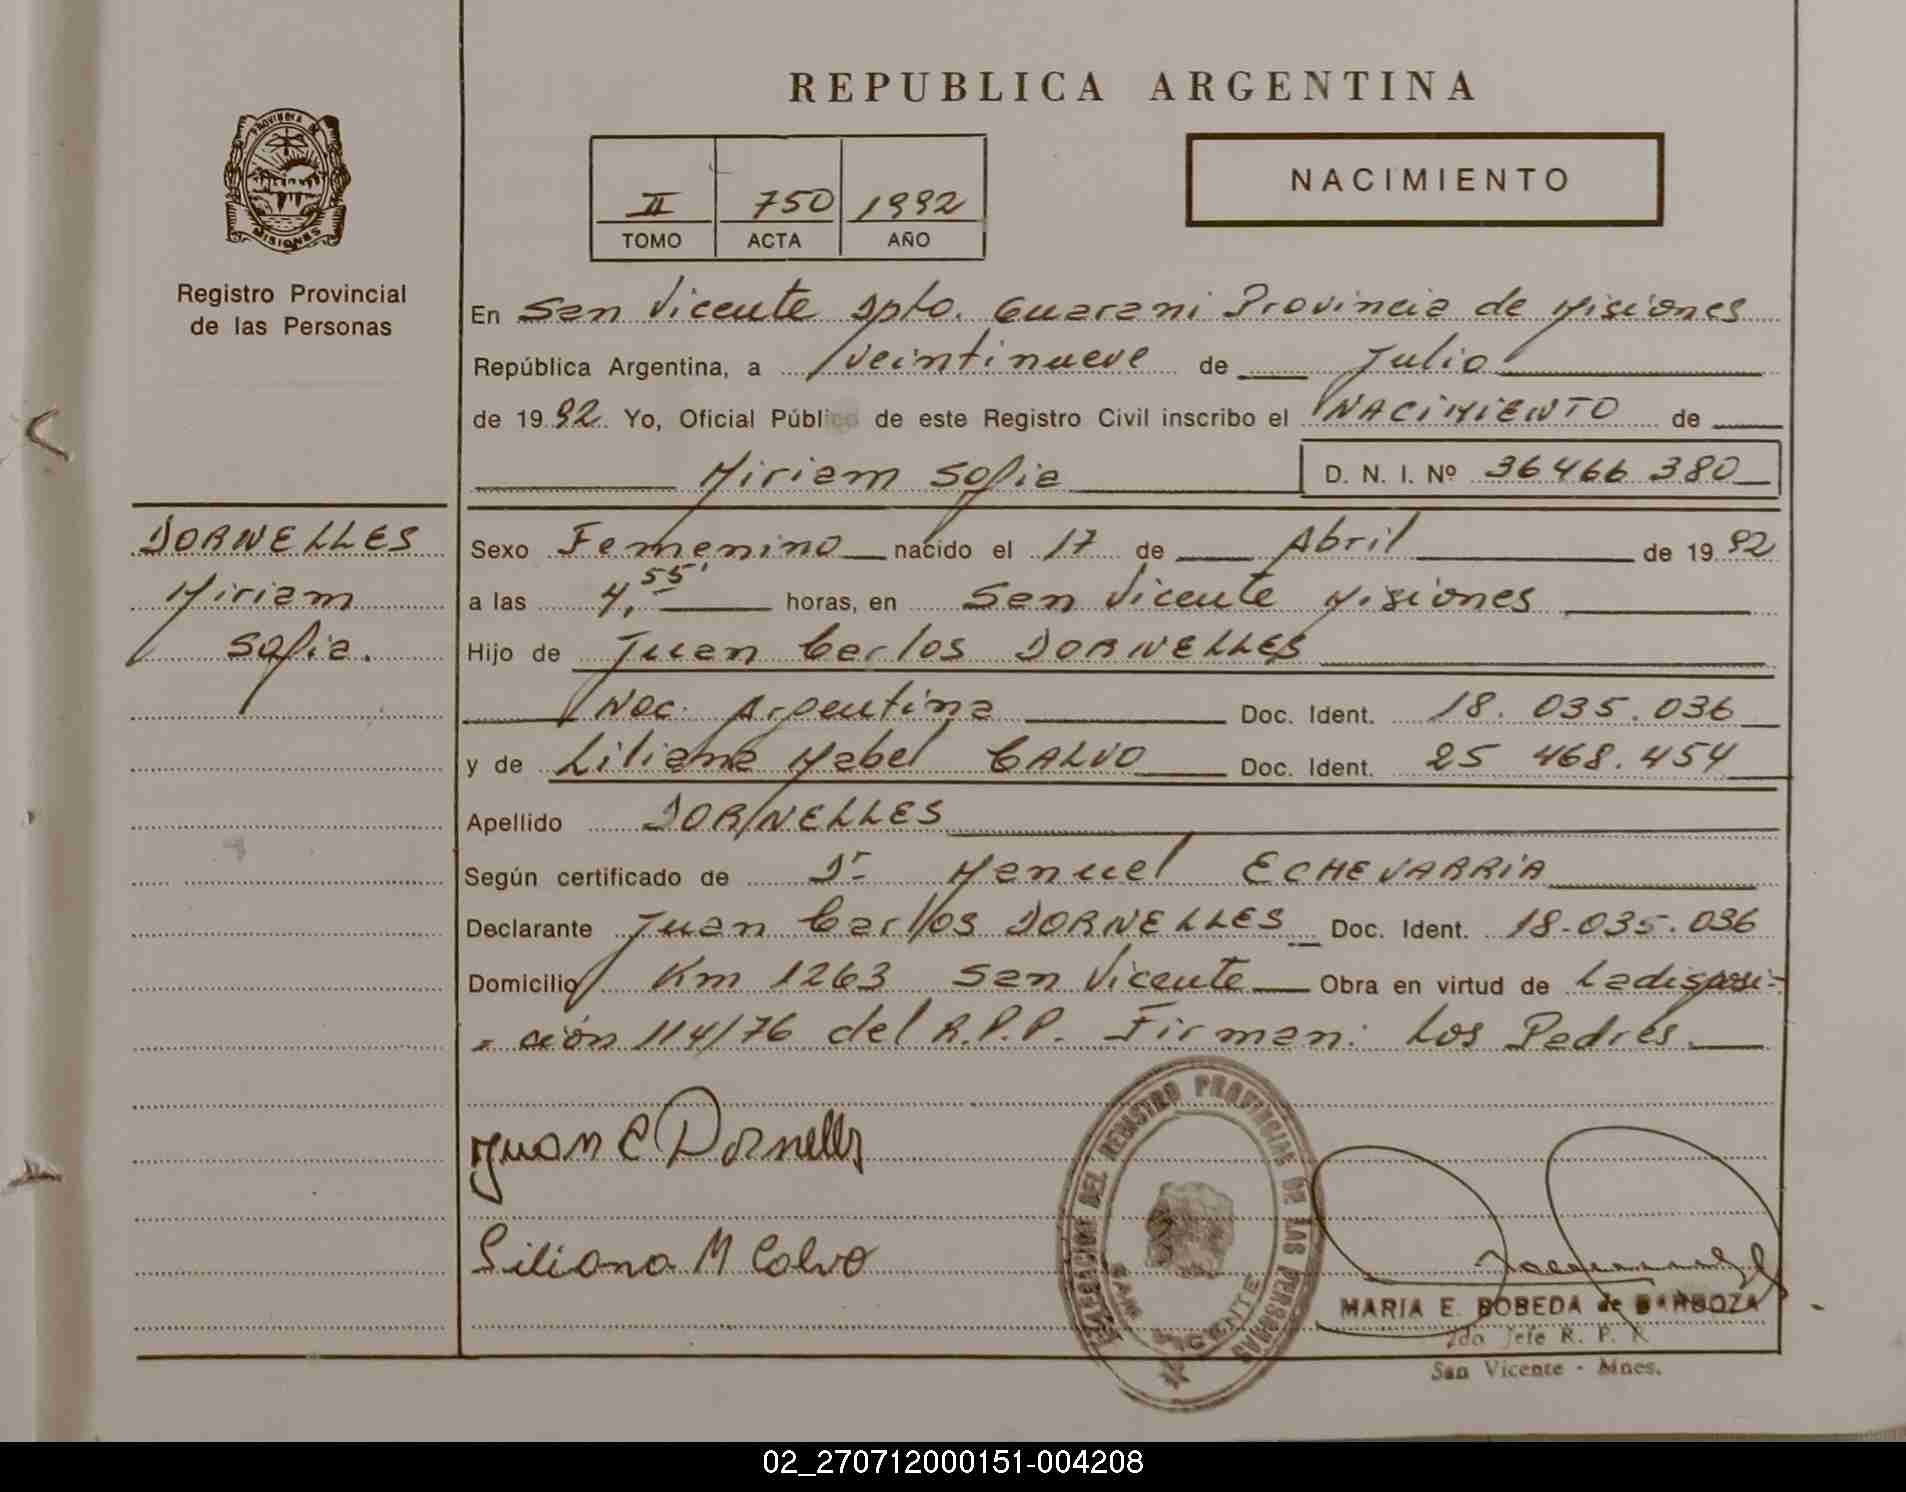 REPUBLICA ARGENTINA
PROVINCIA DE
MISIONES
Registro Provincial
de las Personas
II 750 1992
TOMO ACTA AÑO
NACIMIENTO
En San Vicente Dpto. Guarani Provincia de Misiones
República Argentina, a veintinueve de Julio
de 1992. Yo, Oficial Público de este Registro Civil inscribo el NACIMIENTO de
Miriam Sofia D. N. I. Nº 36466380
DORNELLES
Miriam
Sofia.
Sexo Femenino nacido el 17 de Abril de 1992
a las 4,55' horas, en San Vicente Misiones
Hijo de Juan Carlos DORNELLES
Nac. Argentina Doc. Ident. 18.035.036
y de Liliana Mabel CALVO Doc. Ident. 25 468.454
Apellido DORNELLES
Según certificado de Dr Manuel ECHEVARRIA
Declarante Juan Carlos DORNELLES Doc. Ident. 18-035.036
Domicilio Km 1263 San Vicente Obra en virtud de La disposi-
= ción 114/76 del R.P.P. Firman: Los Padres.
Juan C Dornelles
Liliana M Calvo
DEL REGISTRO PROVINCIAL DE LAS PERSONAS
SAN VICENTE
MARIA E. BOBEDA de BARBOZA
2do Jefe R. P. P.
San Vicente - Mnes.
02_270712000151-004208